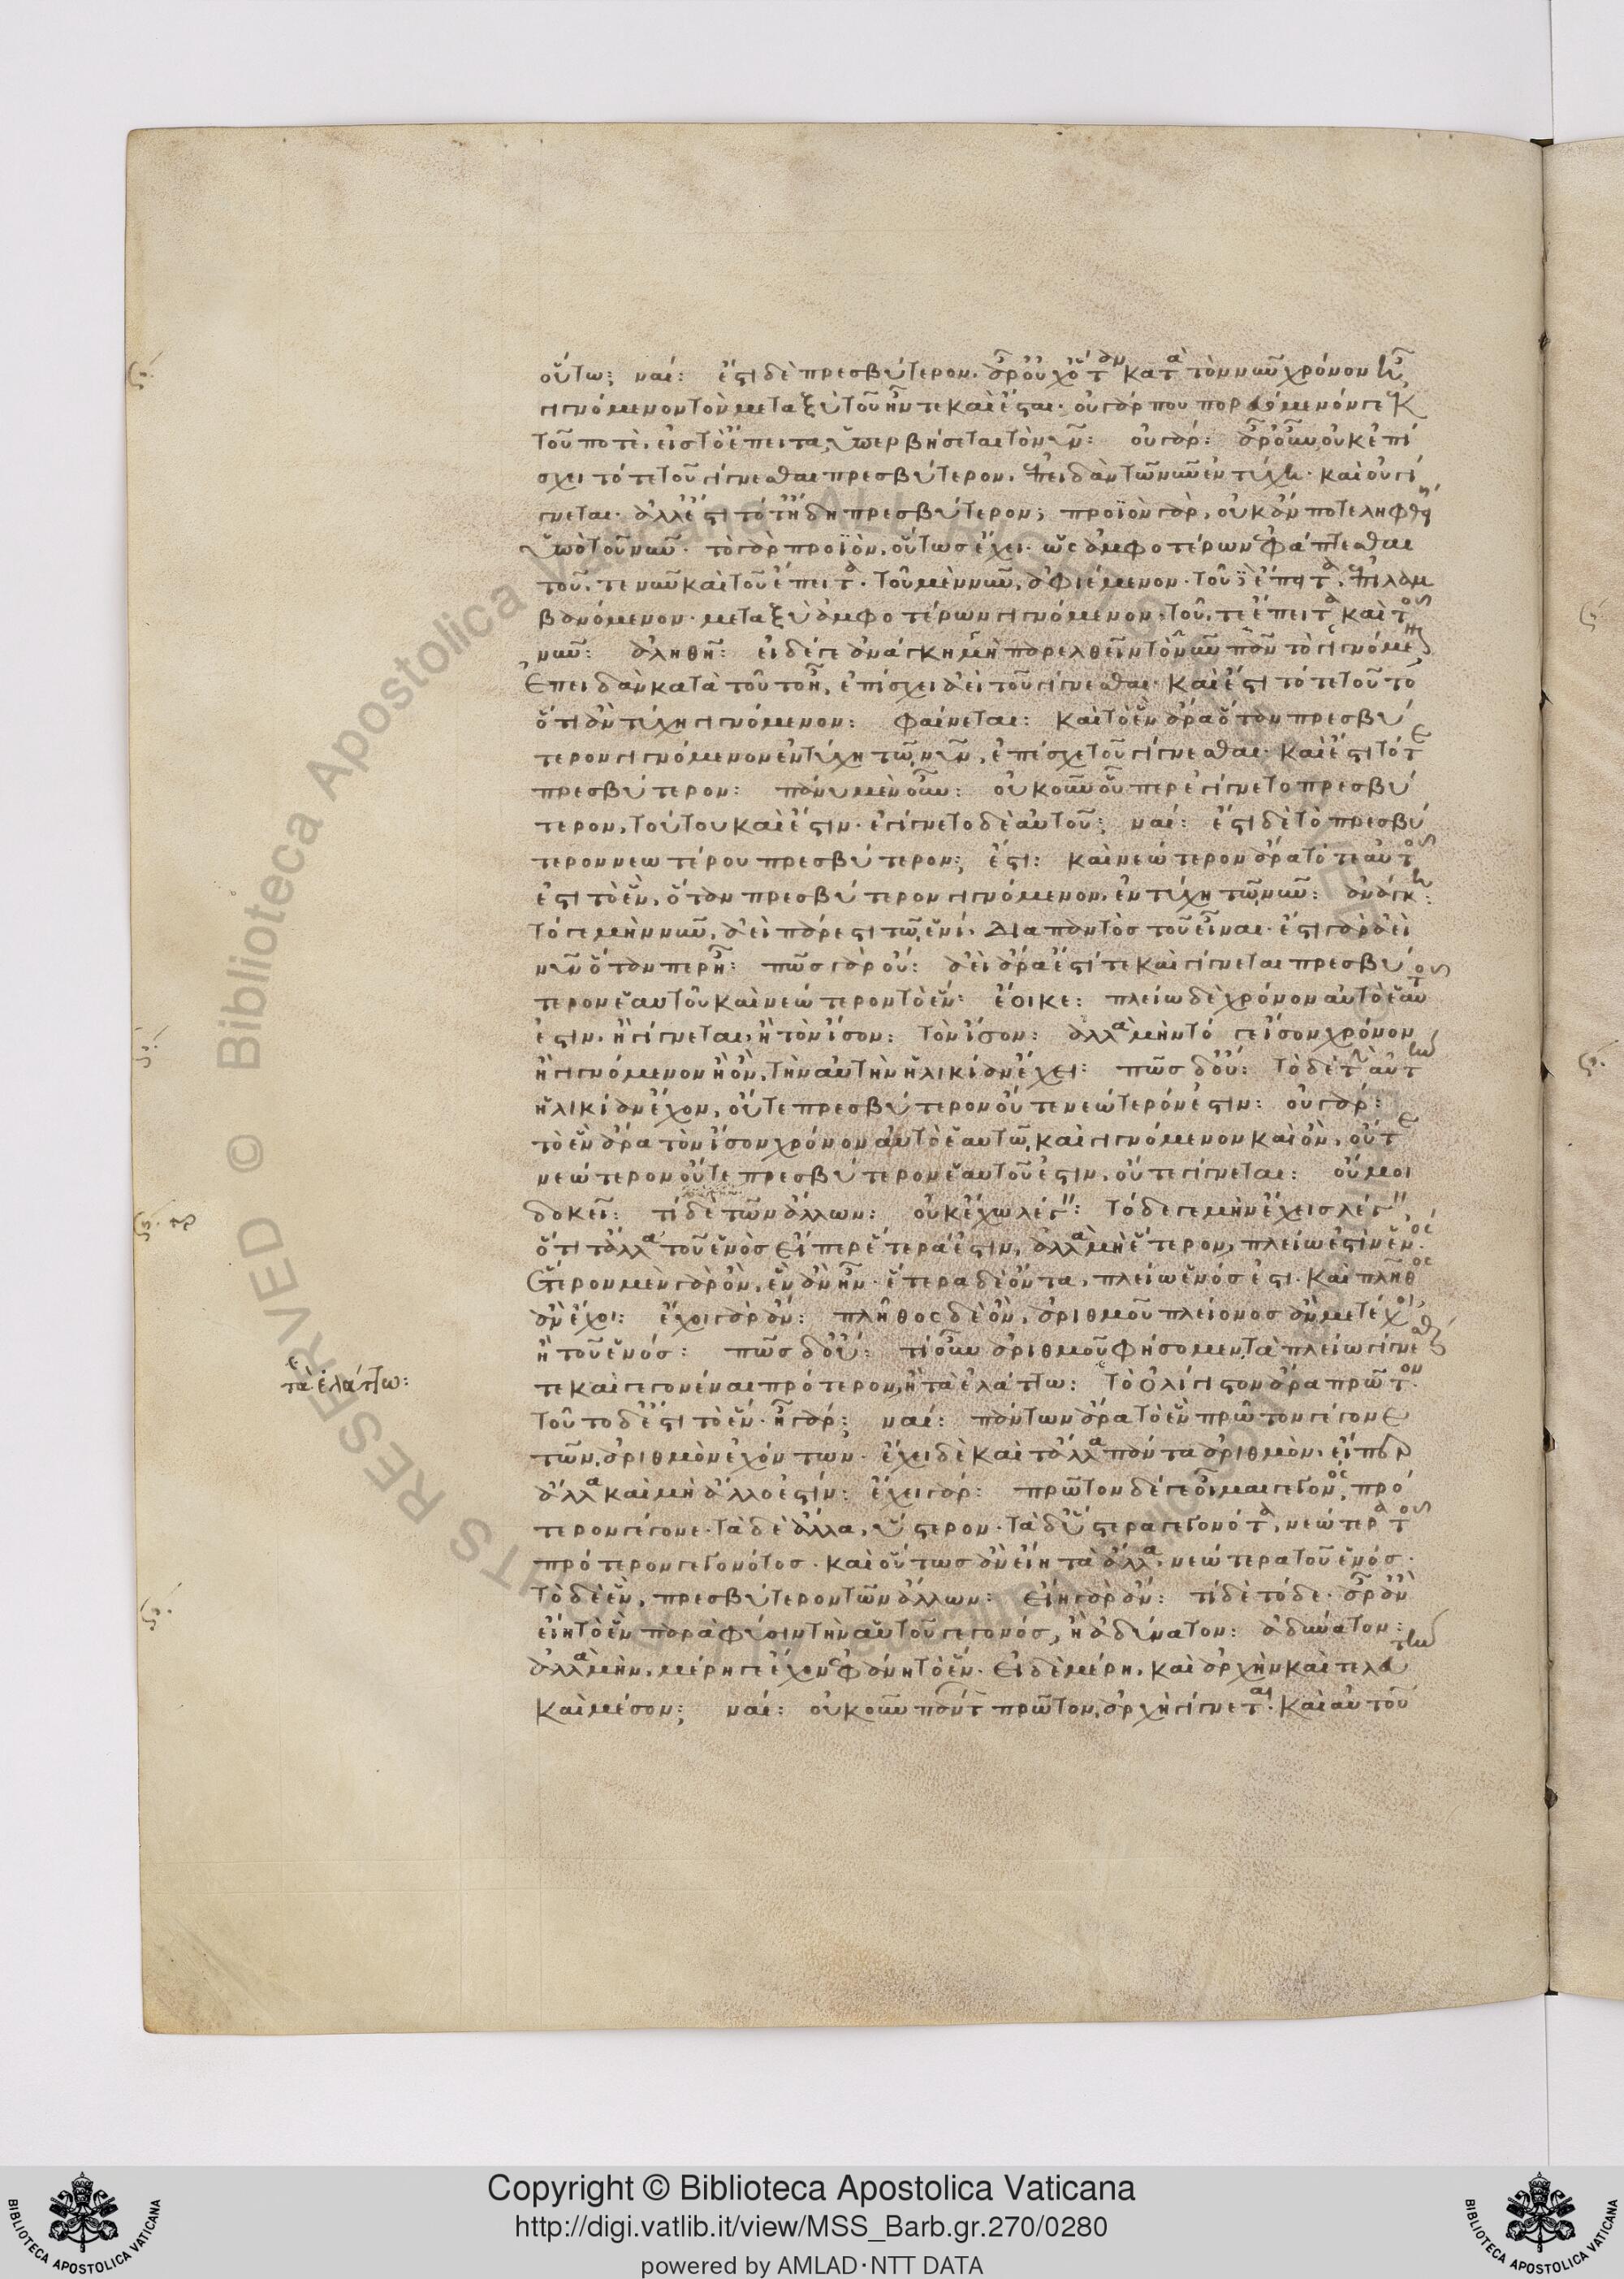 οὕτω; ναί: ἔστι δὲ πρεσβύτερον. ἆρ οὐχ ὅταν κατὰ τὸν νῦν χρόνον ᾖ
γιγνόμενον τὸν μεταξὺ τοῦ ἦν τε καὶ ἔσται· οὐ γάρ που πορευόμενόν γε ἐκ
τοῦ ποτὲ, εἰς τὸ ἔπειτα, ὑπερβήσεται τὸ νῦν: οὐ γάρ: ἆρ οὖν οὐκ ἐπί
σχει τότε τοῦ γίγνεσθαι πρεσβύτερον, ἐπειδὰν τῶ νῦν ἐντύχῃ· καὶ οὐ γί
γνεται· ἀλλ ἔστι τότ ἤδη πρεσβύτερον; προϊὸν γὰρ, οὐκ ἄν ποτε ληφθῇ
ὑπὸ τοῦ νῦν· τὸ γὰρ προϊὸν, οὕτως ἔχει· ὡς ἀμφοτέρων ἐφάπτεσθαι
τοῦ, τε νῦν καὶ τοῦ ἔπειτα· τοῦ μὲν νῦν, ἀφιέμενον· τοῦ δ ἔπειτα, ἐπιλαμ
βανόμενον· μεταξὺ ἀμφοτέρων γιγνόμενον· τοῦ, τε ἔπειτα καὶ τοῦ
νῦν: ἀληθῆ: εἰ δέ γε ἀνάγκη μὴ παρελθεῖν τὸ νῦν πᾶν τὸ γιγνόμενον
ἐπειδὰν κατὰ τοῦτο ᾖ, ἐπίσχει ἀεὶ τοῦ γίγνεσθαι· καὶ ἔστι τότε τοῦτο
ὅτι ἂν τύχῃ γιγνόμενον: φαίνεται: καὶ τὸ ἓν ἄρα ὅταν πρεσβύ
τερον γιγνόμενον ἐντύχῃ τῶ νῦν, ἐπίσχε τοῦ γίγνεσθαι· καὶ ἔστι τότε
πρεσβύτερον: πάνυ μὲν οὖν: οὐκοῦν οὗπερ ἐγίγνετο πρεσβύ
τερον, τούτου καὶ ἔστιν· ἐγίγνετο δὲ αὑτοῦ; ναί: ἔστι δὲ τὸ πρεσβύ
τερον νεωτέρου πρεσβύτερον; ἔστι: καὶ νεώτερον ἄρα τότε αὑτοῦ
ἐστι τὸ ἓν, ὅταν πρεσβύτερον γιγνόμενον, ἐντύχῃ τῶ νῦν: ἀνάγκη:
τό γε μὴν νῦν, ἀεὶ πάρεστι τῶ ἑνί. διὰ παντὸς τοῦ εἶναι· ἔστι γὰρ ἀεὶ
νῦν ὅταν περ ᾖ: πῶς γὰρ οὔ: ἀεὶ ἄρα ἐστί τε καὶ γίγνεται πρεσβύ
τερον ἑαυτοῦ καὶ νεώτερον τὸ ἕν: ἔοικε: πλείω δὲ χρόνον αὐτὸ ἑαυτοῦ
ἐστιν, ἢ γίγνεται, ἢ τὸν ἴσον: τὸν ἴσον: ἀλλὰ μὴν τό γε ἴσον χρόνον
ἢ γιγνόμενον ἢ ὂν, τὴν αὐτὴν ἡλικίαν ἔχει: πῶς δ οὔ: τὸ δὲ τὴν αὐτὴν
ἡλικίαν ἔχον, οὔτε πρεσβύτερον οὔτε νεώτερόν ἐστιν: οὐ γάρ:
τὸ ἓν ἄρα τὸν ἴσον χρόνον αὐτὸ ἑαυτῶ, καὶ γιγνόμενον καὶ ὂν, οὔτε
νεώτερον οὔτε πρεσβύτερον ἑαυτοῦ ἐστιν, οὔτε γίγνεται: οὔ μοι
δοκεῖ: τί δὲ τῶν ἄλλων: οὐκ ἔχω λέγειν: τόδε γε μὴν ἔχεις λέγειν
ὅτι τἆλλα τοῦ ἑνὸς εἴπερ ἕτερά ἐστιν, ἀλλὰ μὴ ἕτερον, πλείω ἐστὶν ἑνός·
ἕτερον μὲν γὰρ ὂν, ἓν ἂν ἦν· ἕτερα δὲ ὄντα, πλείω ἑνός ἐστι. καὶ πλῆθος
ἂν ἔχοι: ἔχοι γὰρ ἄν: πλῆθος δὲ ὂν, ἀριθμοῦ πλείονος ἂν μετέχοι
ἢ τοῦ ἑνός: πῶς δ οὔ: τί οὖν ἀριθμοῦ φήσομεν τὰ πλείω γίγνεσθαι
τε καὶ γεγονέναι πρότερον, ἢ τὰ ἐλάττω: τὸ ὀλίγιστον ἄρα πρῶτον.
τοῦτο δ ἔστι τὸ ἕν· ἦ γάρ: ναί: πάντων ἄρα τὸ ἓν πρῶτον γέγονε
τῶν, ἀριθμὸν ἐχόντων· ἔχει δὲ καὶ τἆλλα πάντα ἀριθμὸν, εἴπερ
ἄλλα καὶ μὴ ἄλλο ἐστίν: ἔχει γάρ: πρῶτον δέ γε οἶμαι γεγονός, πρό
τερον γέγονε· τὰ δὲ ἄλλα, ὕστερον· τὰ δ ὕστερα γεγονότα, νεώτερα τοῦ
πρότερον γεγονότος. καὶ οὕτως ἂν εἴη τὰ ἄλλα, νεώτερα τοῦ ἑνός.
τὸ δὲ ἓν, πρεσβύτερον τῶν ἄλλων: εἴη γὰρ ἄν: τί δὲ τόδε· ἆρ ἂν
εἴη τὸ ἓν παρὰ φύσιν τὴν αὑτοῦ γεγονός, ἢ ἀδύνατον: ἀδύνατον:
ἀλλὰ μὴν, μέρη γε ἔχον ἐφάνη τὸ ἕν· εἰ δὲ μέρη, καὶ ἀρχὴν καὶ τελευτὴν
καὶ μέσον; ναί: οὐκοῦν πάντων πρῶτον, ἀρχὴ γίγνεται· καὶ αὐτοῦ
τὰ ἐλάττω:
Copyright © Biblioteca Apostolica Vaticana
http://digi.vatlib.it/view/MSS_Barb.gr.270/0280
powered by AMLAD·NTT DATA